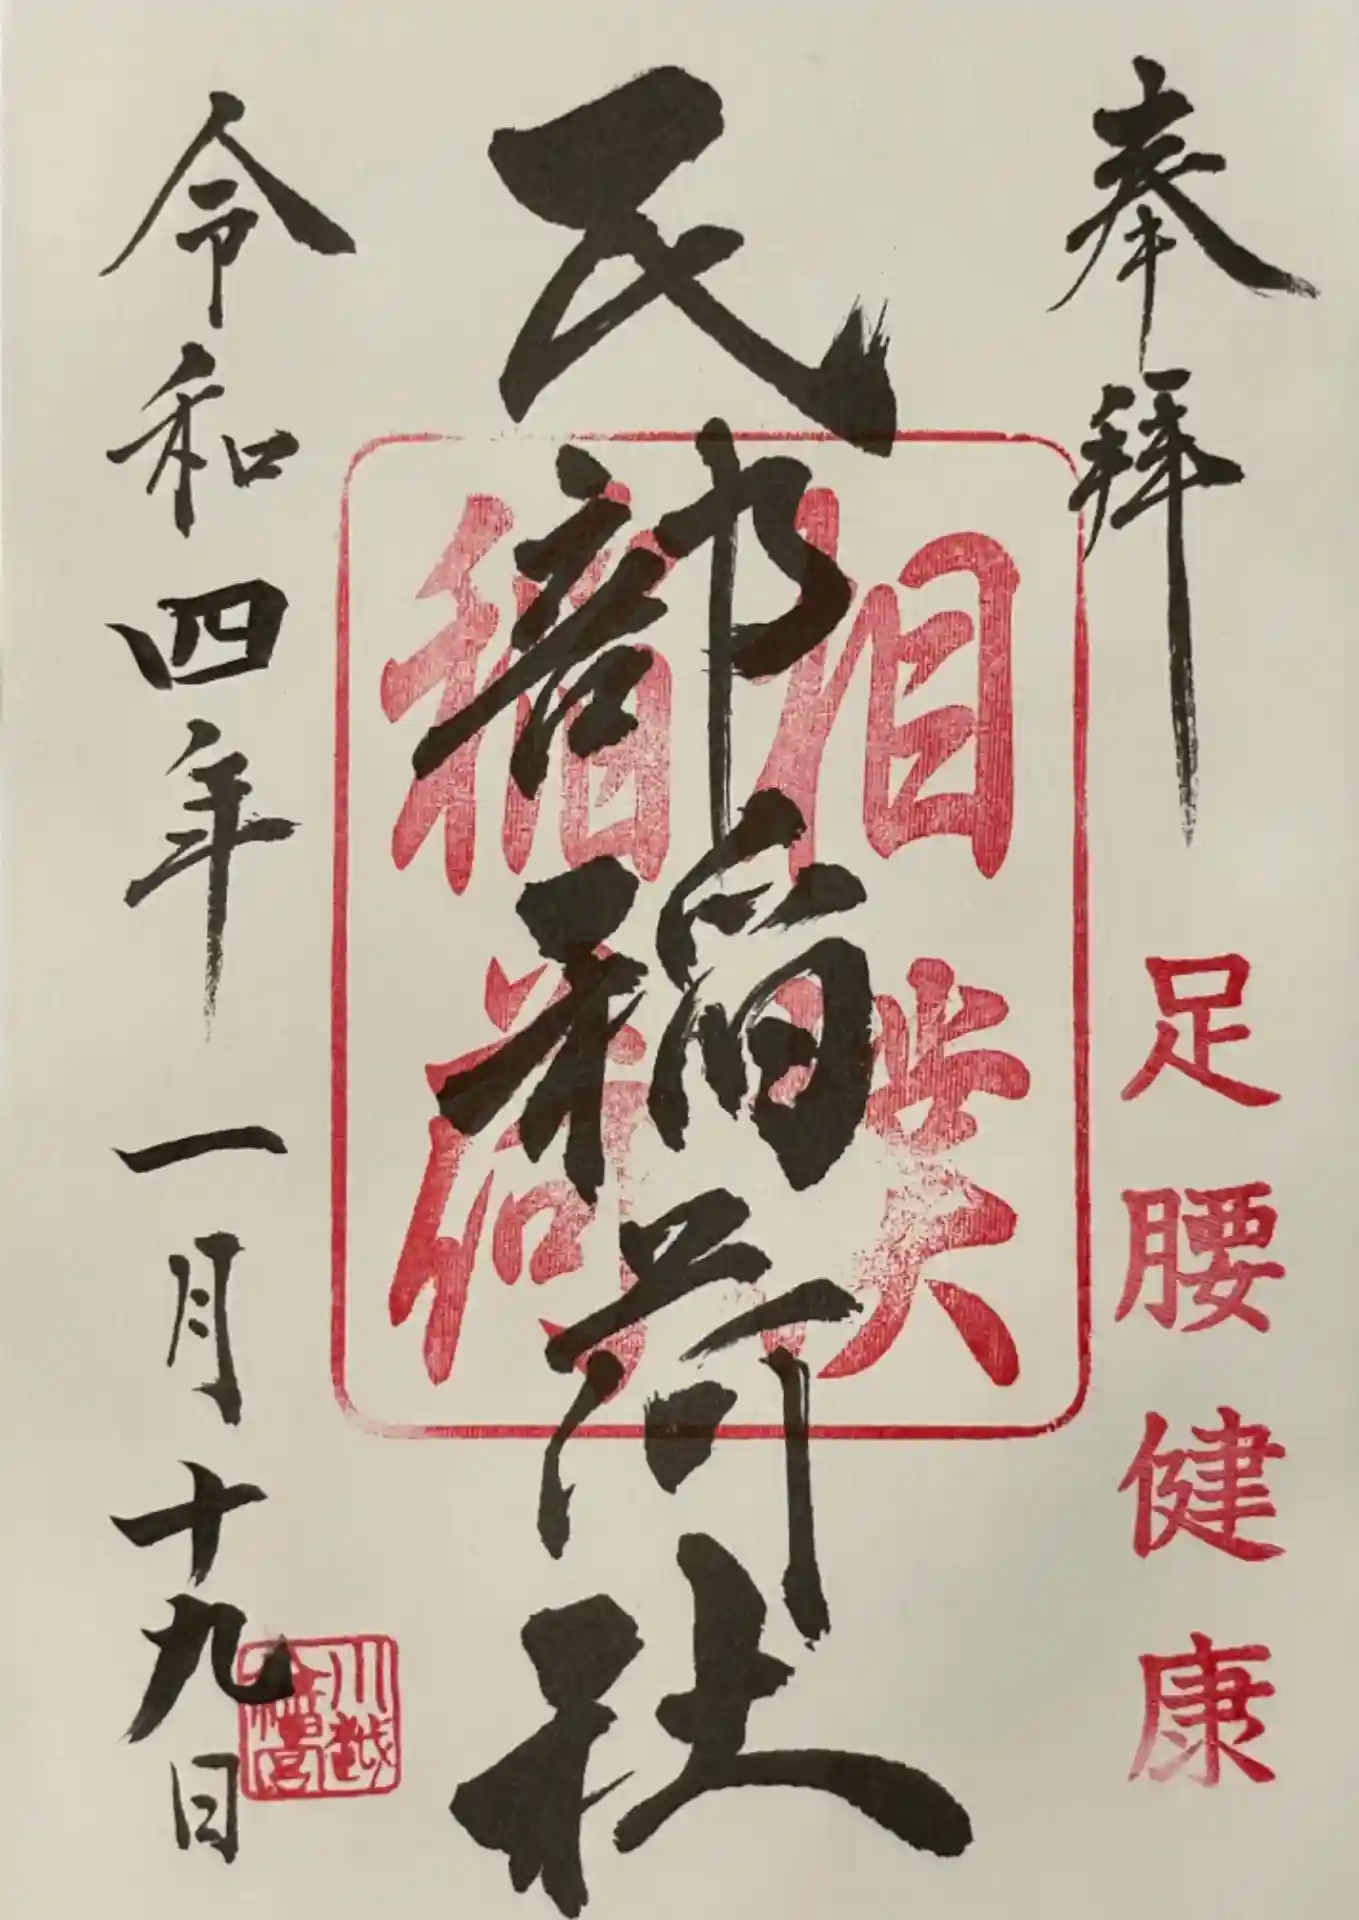 奉拝
足腰健康
民部稲荷社
相撲
稲荷
令和四年一月十九日
川越
八幡宮